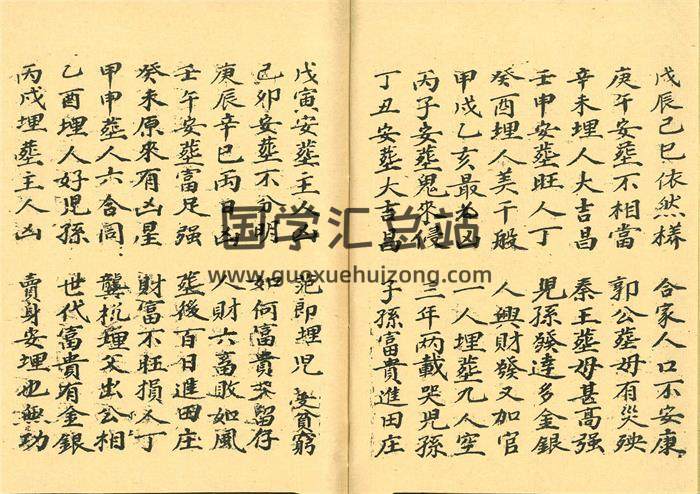 戊辰己巳依然樣 合家人口不安康
庚午安塟不相當 郭公塟母有災殃
辛未埋人大吉昌 秦王塟母甚高强
壬申安塟旺人丁 児孫發達多金銀
癸酉埋人美千般 人興財發又加官
甲戌乙亥最不凶 一人埋塟九人空
丙子安塟鬼來侵 三年两載哭児孫
丁丑安塟大吉昌 子孫富貴進田庄
戊寅安塟主 犯即埋児受貧窮
己卯安塟不分明 如何富貴不留仔
庚辰辛巳两日凶 人財六畜敗如風
壬午安塟富足强 塟後百日進田庄
癸未原來有凶星 財富不旺損人丁
甲申塟人六合同 龔杭埋父出公相
乙酉埋人好児孫 世代富貴有金銀
丙戌埋塟主人凶 賣身安埋也無功
国学汇总站
www.guoxuehuizong.com